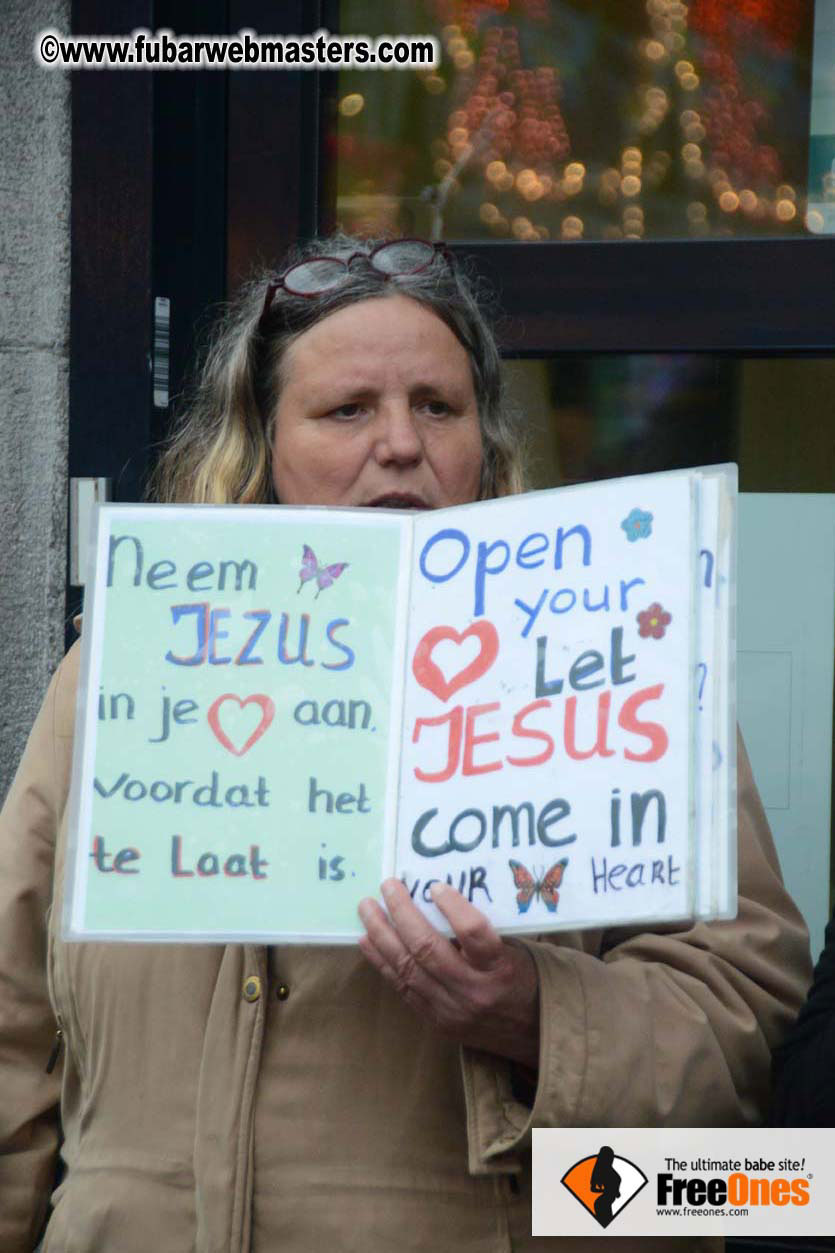 ©www.fubarwebmasters.com
Neem
JEZUS
in je aan.
voordat het
te Laat is.
Open
your
Let
JESUS
come in
your Heart
?
?
The ultimate babe site!
FreeOnes®
www.freeones.com